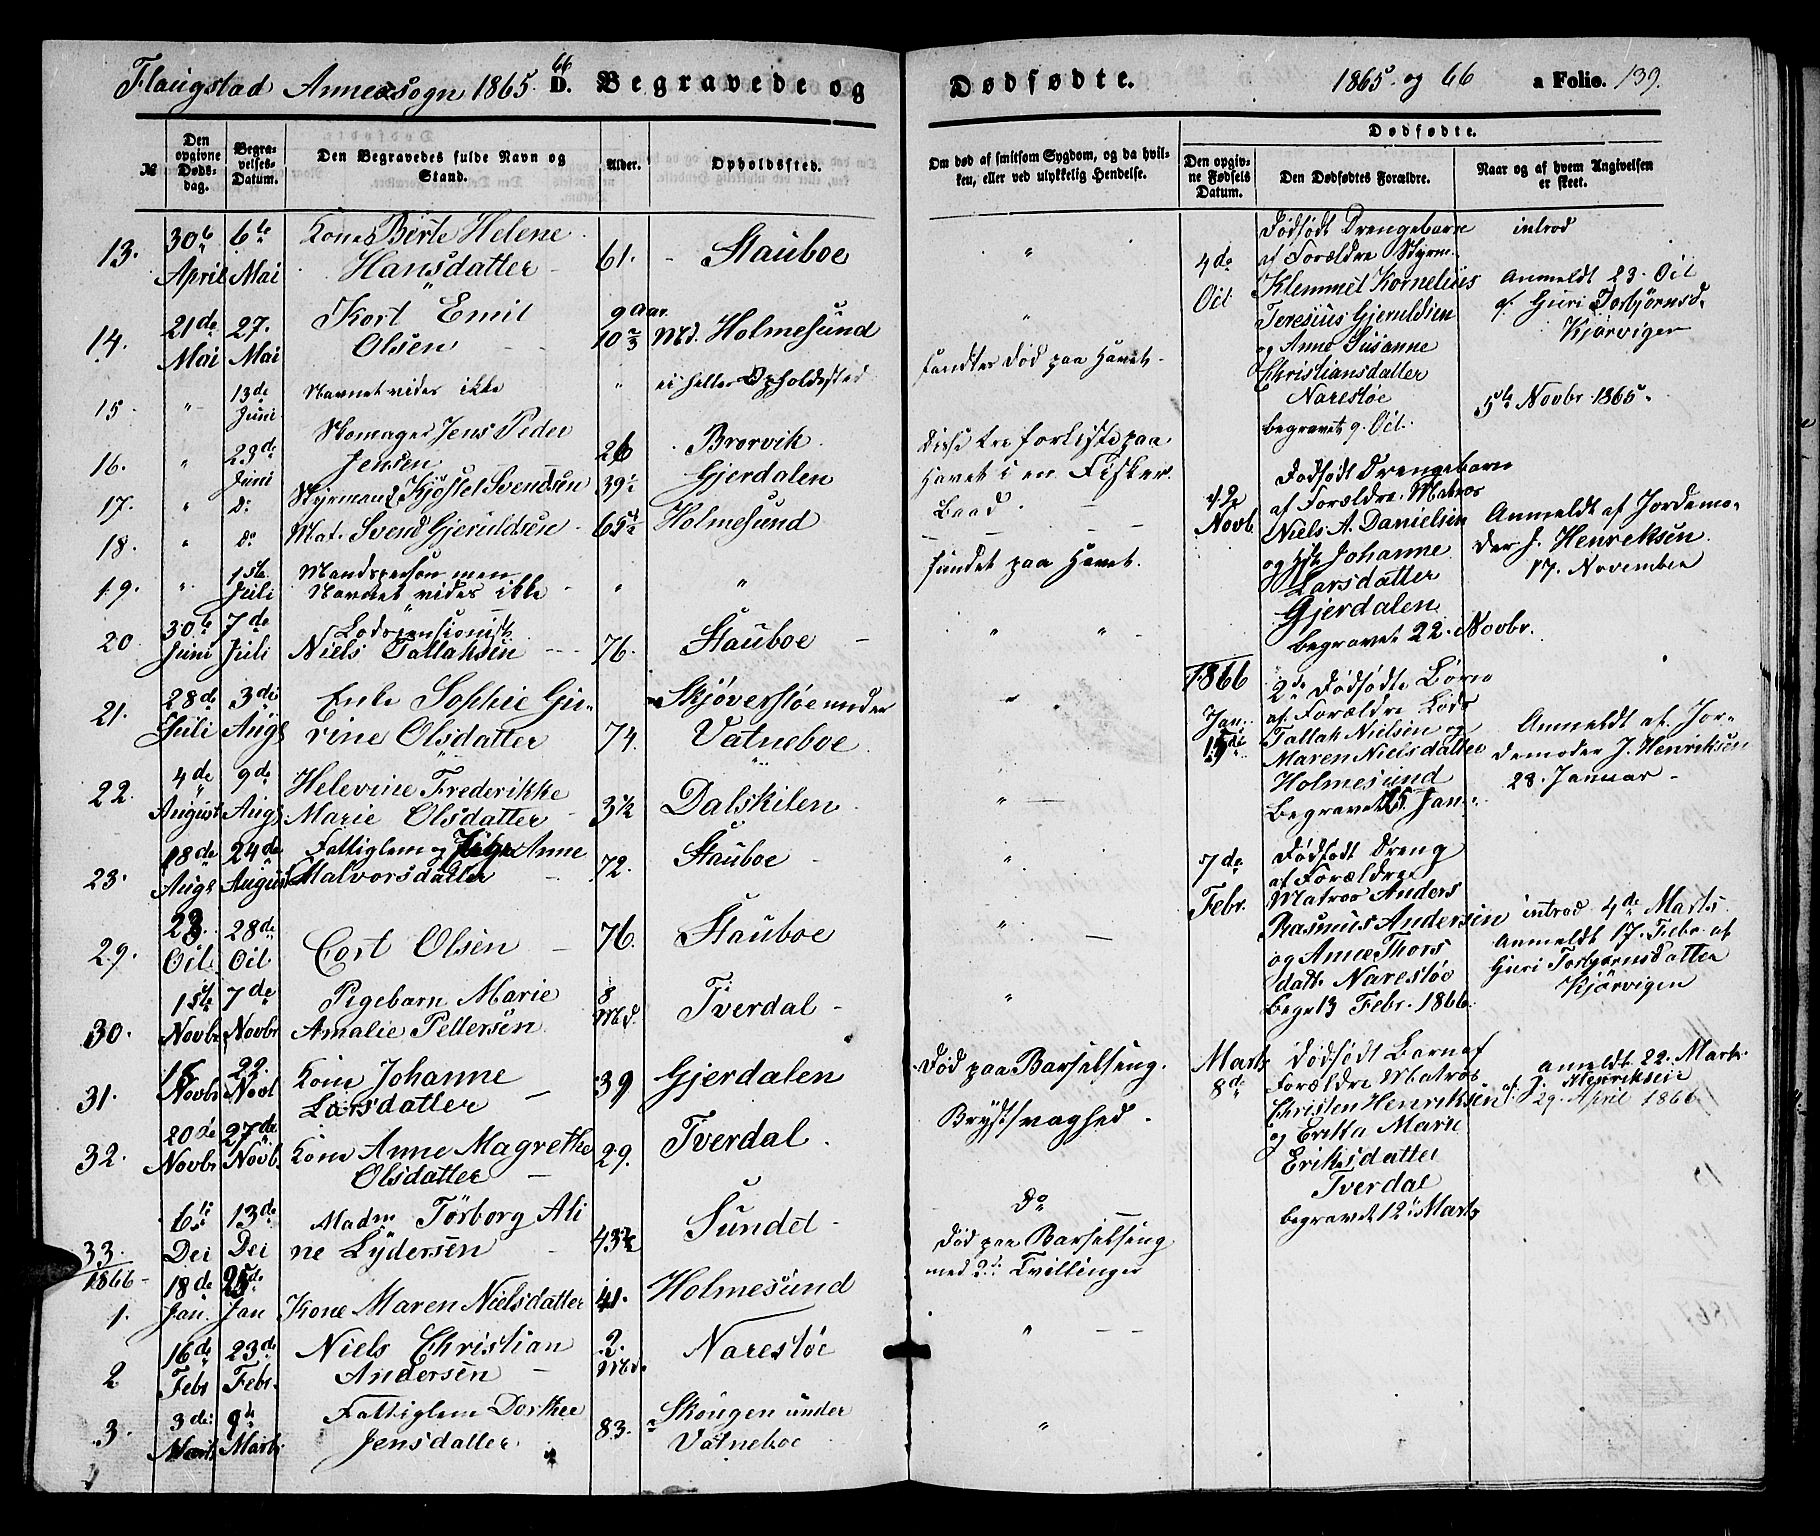 Flaugstad Annexsogn 1865 66 D. Begravede og
Dødfødte. 1865 og 66 a Folio. 139.
№
Den opgivne Døds-dag.
Begra-velses-Datum.
Den Begravedes fulde Navn og Stand.
Alder.
Opholdssted.
Om død af smitsom Sygdom, og da hvil-ken, eller ved ulykkelig Hendelse.
Dødfødte.
Den opgiv-ne Fødsels Datum.
Den Dødfødtes Forældre.
Naar og af hvem Angivelsen er skeet.
13. 30te April 6te Mai Kone Birte Helene Hansdatter 61. Stauboe "
14. 21de Mai 27. Mai Kort Emil Olsen 9 Aar 10 2/3 Md. Holmesund "
15 " 13de Juni Navnet vides ikke " ei heller Opholdssted fandtes død paa Havet
16. " 23de Juni Jens Peder Jensen 26 Brorvik Disse tre forliste paa
17. " Do Styrmand Kjøstel Svendsen 39 Gjerdalen Havet i en Fisker
18. " Do Mat. Svend Gjeruldsen 65 Holmesund Baad
19. " 1ste Juli Mandsperson men Navnet vides ikke " " fundet paa Havet.
20 30te Juni 7de Juli Lodspensionist Niels Tallaksen 76. Stauboe " "
21. 28de Juli 3die Augs Enke Sophie Gu-rine Olsdatter 74. Skjøverstøe under Vatneboe "
22. 4de August 9de Augs Helevine Frederikke Marie Olsdatter 3½ Dalskilen "
23. 18de Augs 24de August Fattiglem og Pige Anne Halvorsdatter 72. Stauboe "
29. 23. Oct 28de Oct Cort Olsen 76. Stauboe "
30. 1ste Novbr 7de Novbr Pigebarn Marie Amalie Pettersen 8 Md. Tverdal "
31. Novbr 22. Novb Kone Johanne Larsdatter 39 Gjerdalen Død paa Barselseng.
32. 20de Novbr 27de Novb. Kone Anne Magrethe Olsdatter 29. Tverdal Brystsvaghed.
33. 6te Dec 13de Dec Madm Torborg Ali ne Lydersen 43½ Sundet Do
1866
1. 18de Jan. 25de Jan Kone Maren Nielsdatter 41. Holmesund Død paa Barselseng med 2de Tvillinger
2 16de Febr 23de Febr. Niels Christian Andersen 2 Md. Narestøe "
3. 3de Marts 9de Marts Fattiglem Dorthee Jensdatter 83. Skougen under Vatneboe "
4de Oct
Dødfødt Drengebarn
af Forældre Styrm.
Klemmet Kornelius
Teresius Gjeruldsen
og Anne Susanne
Christiansdatter
Narestøe
begravet 9. Oct.
introd
Anmeldt 23. Oct
af Guri Torbjørnsd.
Kjørvigen
5te Novbr 1865.
Novb.
Dødfødt Drengebarn
af Forældre Matros
Niels A. Danielsen
og Johanne
Larsdatter
Gjerdalen
begravet 22. Novbr.
Anmeldt af Jordemo-
der J. Henriksen
17. November
1866
Jan. 15de
2de Dødfødte Børn
af Forældre Lods
Tallak Nielsen og
Maren Nielsdatter
Holmesund
begravet 25. Jan.
Anmeldt af Jor-
demoder J. Henriksen
28. Januar
7de Febr.
Dødfødt Dreng
af Forældre
Matros Anders
Rasmus Andersen
og Anne Thors
datt. Narestøe
begr 13 Febr. 1866
introd 4de Marts
Anmeldt 17. Febr af
Guri Torbjørnsdatter
Kjørvigen
Marts 8de
Dødfødt Barn af
Forældre Matros
Christen Henriksen
og Erikka Marie
Eriksdatter
Tverdal
begravet 12te Marts
anmeldt 22. Marts
af J. Henriksen
29. April 1866